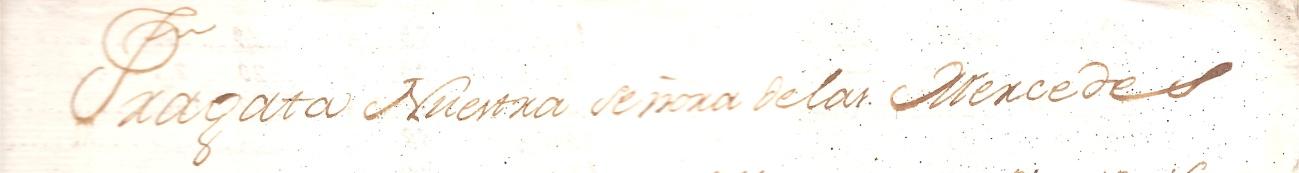 Fragata Nuestra señora delas Mercedes